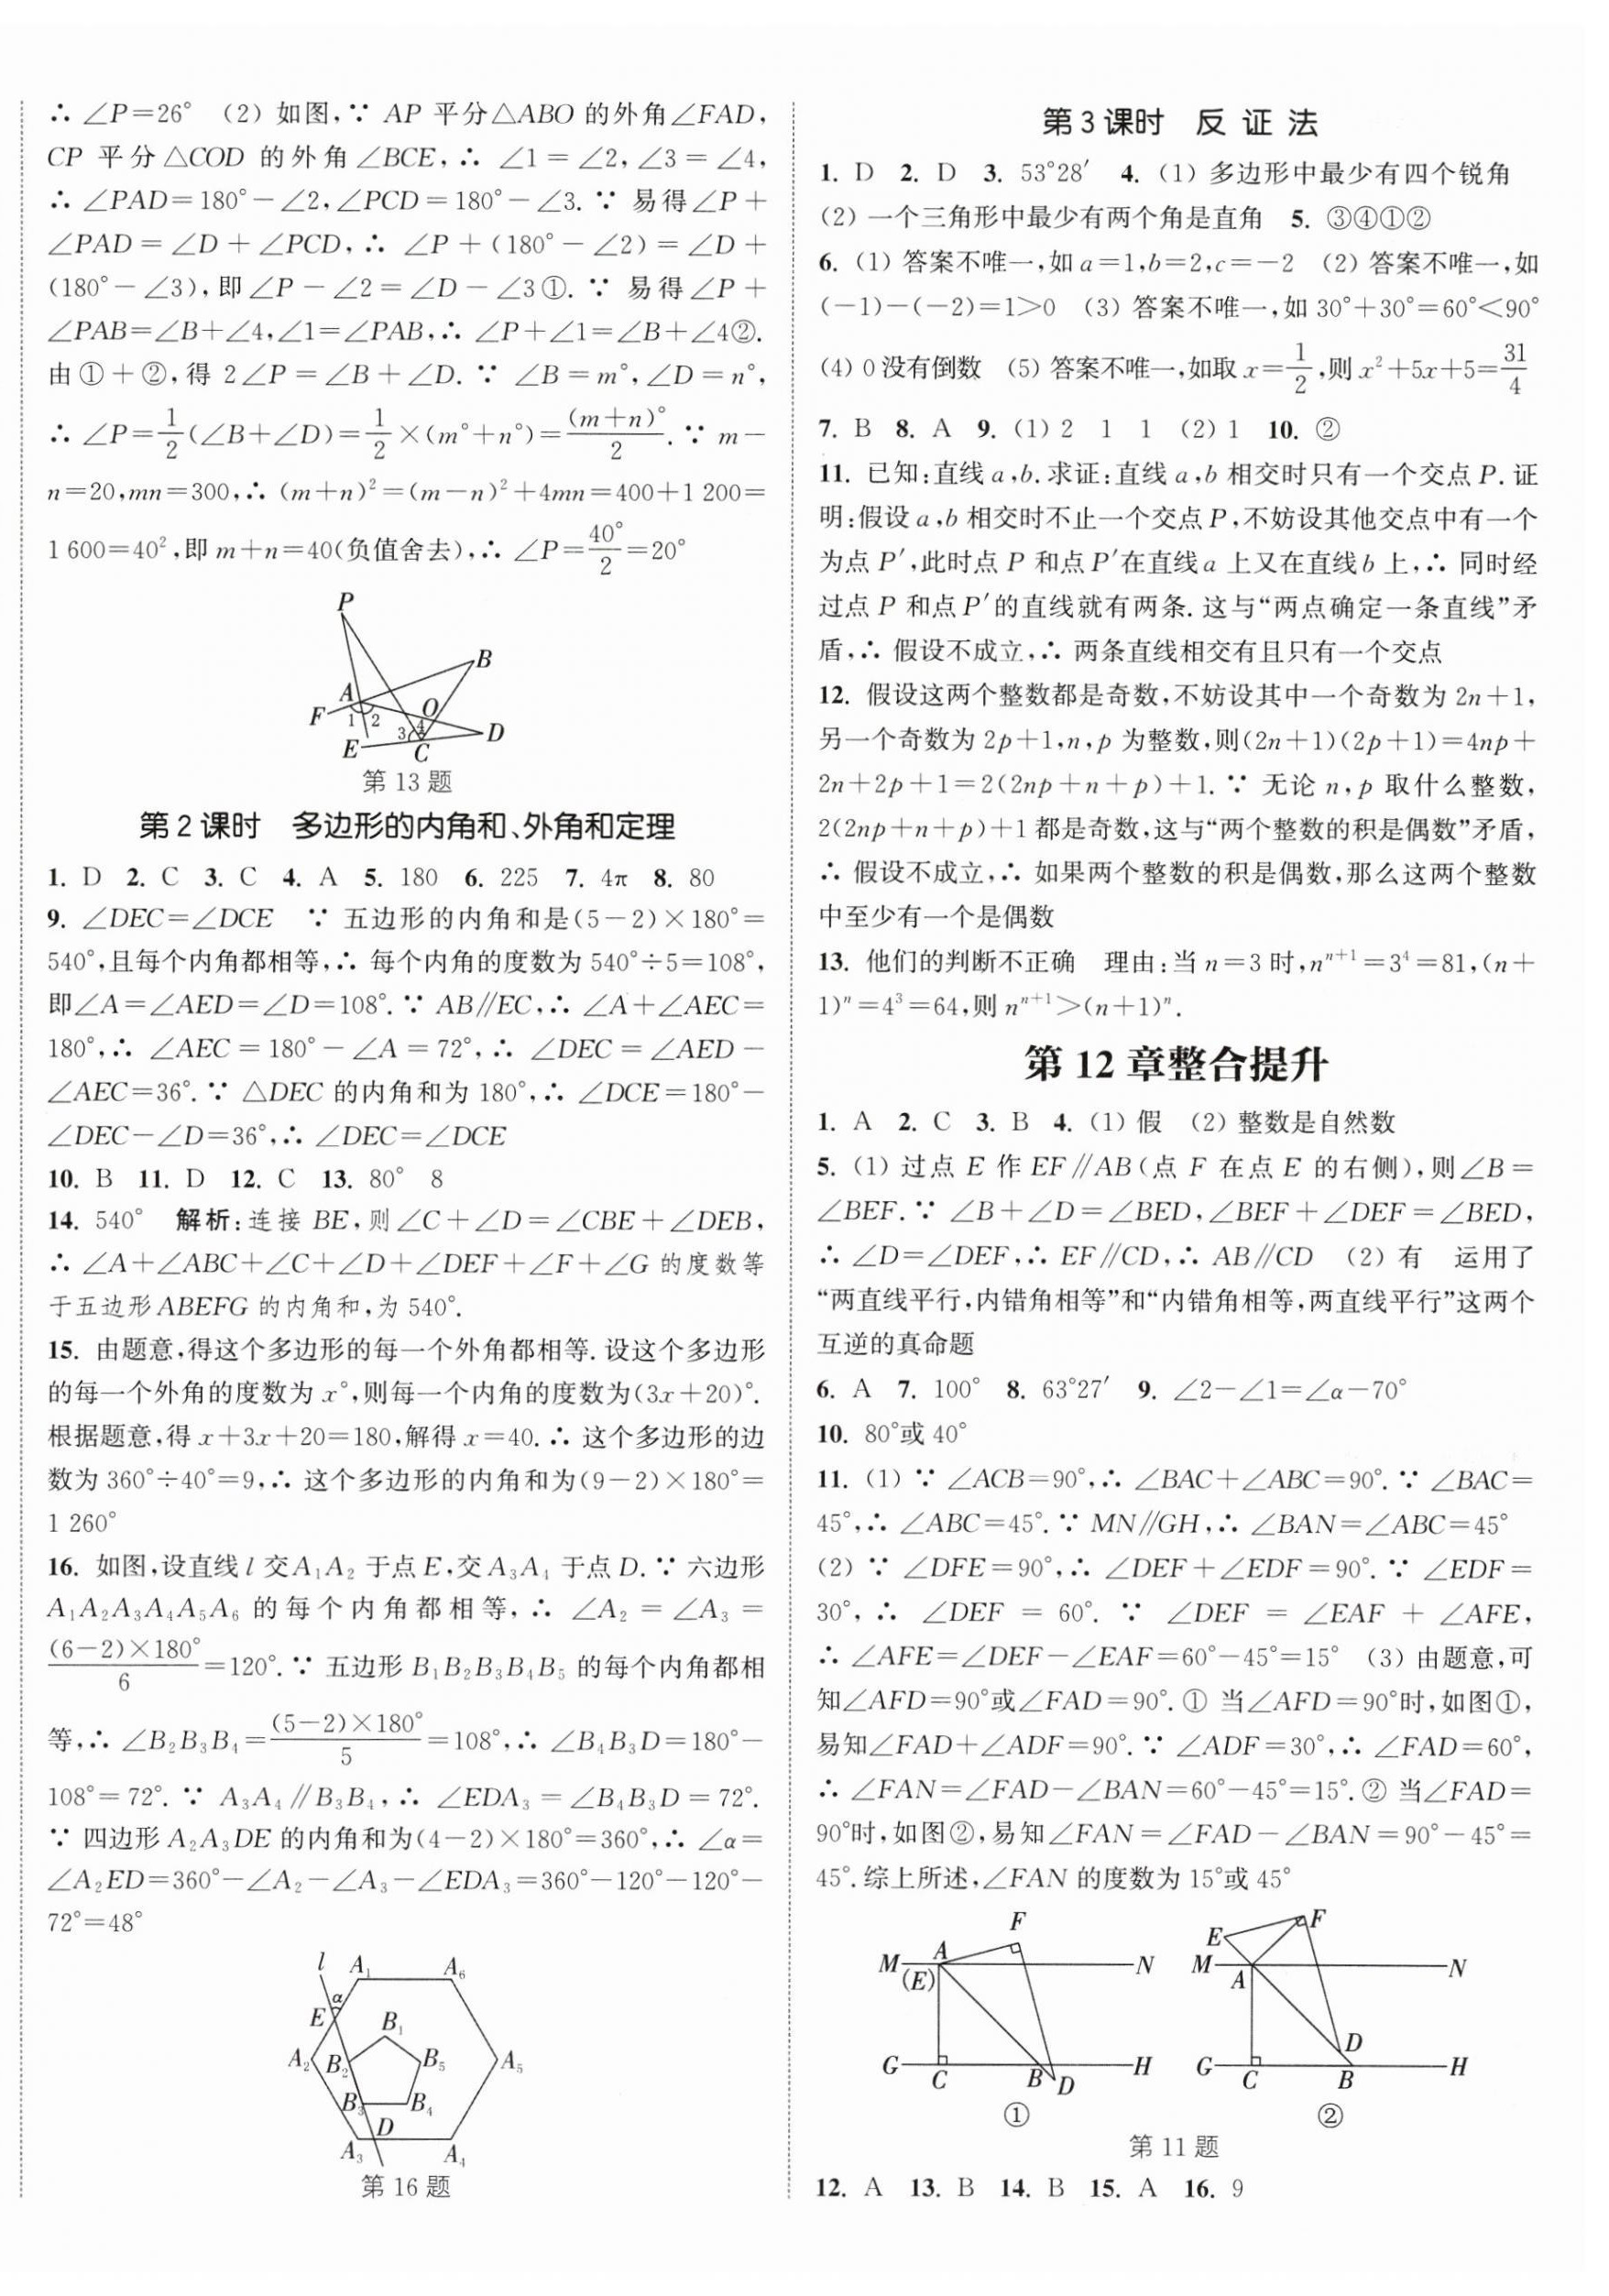 ∴ ∠P=26° (2) 如图,∵ AP 平分△ABO 的外角∠FAD,
CP 平分△COD 的外角∠BCE,∴ ∠1=∠2,∠3=∠4,
∴ ∠PAD=180°-∠2,∠PCD=180°-∠3.∵ 易得∠P+
∠PAD=∠D+∠PCD,∴ ∠P+(180°-∠2)=∠D+
(180°-∠3),即∠P-∠2=∠D-∠3①.∵ 易得∠P+
∠PAB=∠B+∠4,∠1=∠PAB,∴ ∠P+∠1=∠B+∠4②.
由①+②,得 2∠P=∠B+∠D.∵ ∠B=m°,∠D=n°,
∴ ∠P=1/2(∠B+∠D)=1/2×(m°+n°)=(m+n)°/2.∵ m-
n=20,mn=300,∴ (m+n)²=(m-n)²+4mn=400+1 200=
1 600=40²,即 m+n=40(负值舍去),∴ ∠P=40°/2=20°
P
B
A
F 1 2 O
3 4
E C D
第 13 题
第 2 课时 多边形的内角和、外角和定理
1. D 2. C 3. C 4. A 5. 180 6. 225 7. 4π 8. 80
9. ∠DEC=∠DCE ∵ 五边形的内角和是(5-2)×180°=
540°,且每个内角都相等,∴ 每个内角的度数为 540°÷5=108°,
即∠A=∠AED=∠D=108°.∵ AB∥EC,∴ ∠A+∠AEC=
180°,∴ ∠AEC=180°-∠A=72°,∴ ∠DEC=∠AED-
∠AEC=36°.∵ △DEC 的内角和为 180°,∴ ∠DCE=180°-
∠DEC-∠D=36°,∴ ∠DEC=∠DCE
10. B 11. D 12. C 13. 80° 8
14. 540° 解析:连接 BE,则∠C+∠D=∠CBE+∠DEB,
∴ ∠A+∠ABC+∠C+∠D+∠DEF+∠F+∠G 的度数等
于五边形ABEFG 的内角和,为 540°.
15. 由题意,得这个多边形的每一个外角都相等.设这个多边形
的每一个外角的度数为 x°,则每一个内角的度数为(3x+20)°.
根据题意,得 x+3x+20=180,解得 x=40.∴ 这个多边形的边
数为 360°÷40°=9,∴ 这个多边形的内角和为(9-2)×180°=
1 260°
16. 如图,设直线 l 交A₁A₂ 于点E,交A₃A₄ 于点 D.∵ 六边形
A₁A₂A₃A₄A₅A₆ 的每个内角都相等,∴ ∠A₂=∠A₃=
(6-2)×180°/6=120°.∵ 五边形 B₁B₂B₃B₄B₅ 的每个内角都相
等,∴ ∠B₂B₃B₄=(5-2)×180°/5=108°,∴ ∠B₄B₃D=180°-
108°=72°.∵ A₃A₄∥B₃B₄,∴ ∠EDA₃=∠B₄B₃D=72°.
∵ 四边形 A₂A₃DE 的内角和为(4-2)×180°=360°,∴ ∠α=
∠A₂ED=360°-∠A₂-∠A₃-∠EDA₃=360°-120°-120°-
72°=48°
l A₁ A₆
α
E B₁
A₂ B₂ B₅ A₅
B₃ B₄
D
A₃ A₄
第 16 题
第 3 课时 反 证 法
1. D 2. D 3. 53°28′ 4. (1) 多边形中最少有四个锐角
(2) 一个三角形中最少有两个角是直角 5. ③④①②
6. (1) 答案不唯一,如 a=1,b=2,c=-2 (2) 答案不唯一,如
(-1)-(-2)=1>0 (3) 答案不唯一,如 30°+30°=60°<90°
(4) 0 没有倒数 (5) 答案不唯一,如取 x=1/2,则 x²+5x+5=31/4
7. B 8. A 9. (1) 2 1 1 (2) 1 10. ②
11. 已知:直线 a,b.求证:直线 a,b 相交时只有一个交点 P.证
明:假设 a,b 相交时不止一个交点 P,不妨设其他交点中有一个
为点 P′,此时点 P 和点 P′在直线 a 上又在直线 b 上,∴ 同时经
过点 P 和点 P′的直线就有两条.这与“两点确定一条直线”矛
盾,∴ 假设不成立,∴ 两条直线相交有且只有一个交点
12. 假设这两个整数都是奇数,不妨设其中一个奇数为 2n+1,
另一个奇数为 2p+1,n,p 为整数,则(2n+1)(2p+1)=4np+
2n+2p+1=2(2np+n+p)+1.∵ 无论 n,p 取什么整数,
2(2np+n+p)+1 都是奇数,这与“两个整数的积是偶数”矛盾,
∴ 假设不成立,∴ 如果两个整数的积是偶数,那么这两个整数
中至少有一个是偶数
13. 他们的判断不正确 理由:当 n=3 时,nⁿ⁺¹=3⁴=81,(n+
1)ⁿ=4³=64,则 nⁿ⁺¹>(n+1)ⁿ.
第 12 章整合提升
1. A 2. C 3. B 4. (1) 假 (2) 整数是自然数
5. (1) 过点 E 作 EF∥AB(点 F 在点 E 的右侧),则∠B=
∠BEF.∵ ∠B+∠D=∠BED,∠BEF+∠DEF=∠BED,
∴ ∠D=∠DEF,∴ EF∥CD,∴ AB∥CD (2) 有 运用了
“两直线平行,内错角相等”和“内错角相等,两直线平行”这两个
互逆的真命题
6. A 7. 100° 8. 63°27′ 9. ∠2-∠1=∠α-70°
10. 80°或 40°
11. (1) ∵ ∠ACB=90°,∴ ∠BAC+∠ABC=90°.∵ ∠BAC=
45°,∴ ∠ABC=45°.∵ MN∥GH,∴ ∠BAN=∠ABC=45°
(2) ∵ ∠DFE=90°,∴ ∠DEF+∠EDF=90°.∵ ∠EDF=
30°,∴ ∠DEF=60°.∵ ∠DEF=∠EAF+∠AFE,
∴ ∠AFE=∠DEF-∠EAF=60°-45°=15° (3) 由题意,可
知∠AFD=90°或∠FAD=90°.① 当∠AFD=90°时,如图①,
易知∠FAD+∠ADF=90°.∵ ∠ADF=30°,∴ ∠FAD=60°,
∴ ∠FAN=∠FAD-∠BAN=60°-45°=15°.② 当∠FAD=
90°时,如图②,易知∠FAN=∠FAD-∠BAN=90°-45°=
45°.综上所述,∠FAN 的度数为 15°或 45°
F
M A N
(E)
G C B D H
①
E F
M A N
D
G C B H
②
第 11 题
12. A 13. B 14. B 15. A 16. 9